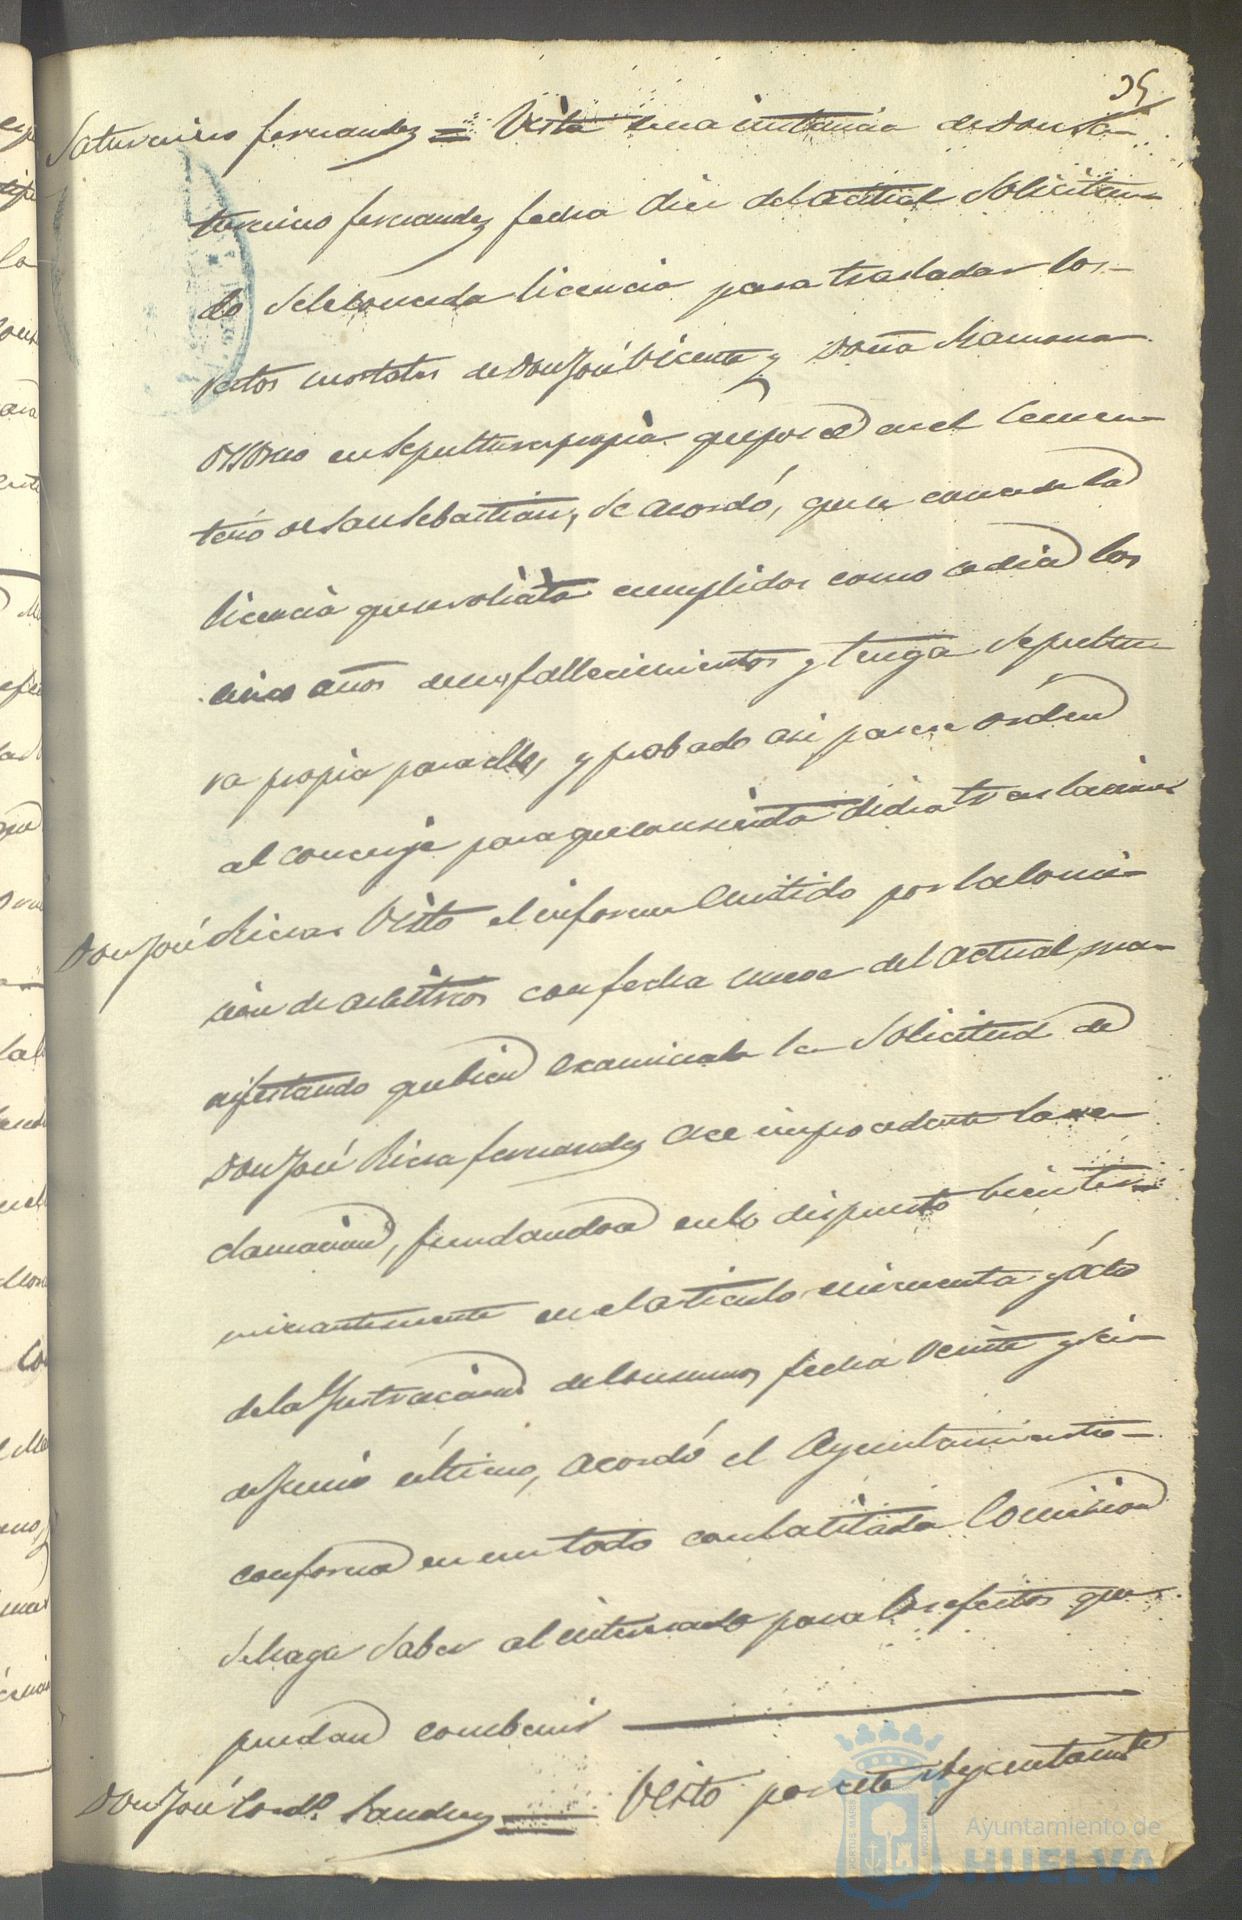 35
Saturnino Fernandez = Vista una instancia de Don Sa-
turnino Fernandez fecha diez del actual solicitan-
do sele conceda licencia para trasladar los
restos mortales de Don José Vicente y Doña Ramona
Ossorno en sepultura propia que posee en el Cemen-
terio de San Sebastian, se acordó, que se concede la
licencia que solicita cumplidos como sedia los
cinco años de sus fallecimientos y tenga sepultu-
ra propia para ello, y probado asi pase orden
al conserje para que consienta dicha traslacion
Don José Riera = Visto el informe emitido por la Comi-
sion de arbitrios con fecha nueve del actual, ma-
nifestando que bien examinada la solicitud de
Don José Riera Fernandez ace improcedente la re-
clamacion, fundandose en lo dispuesto bien ter-
minantemente en el articulo cincuenta y ócho
de la Ynstruccion de Consumos, fecha veinte y sei-
de Junio último, acordó el Ayuntamiento
conforme en un todo con la citada Comision
se haga saber al interesado para los efectos que
puedan combenir
Don José Cordº. Sanchez = Visto por este Ayuntamto
Ayuntamiento de
HUELVA